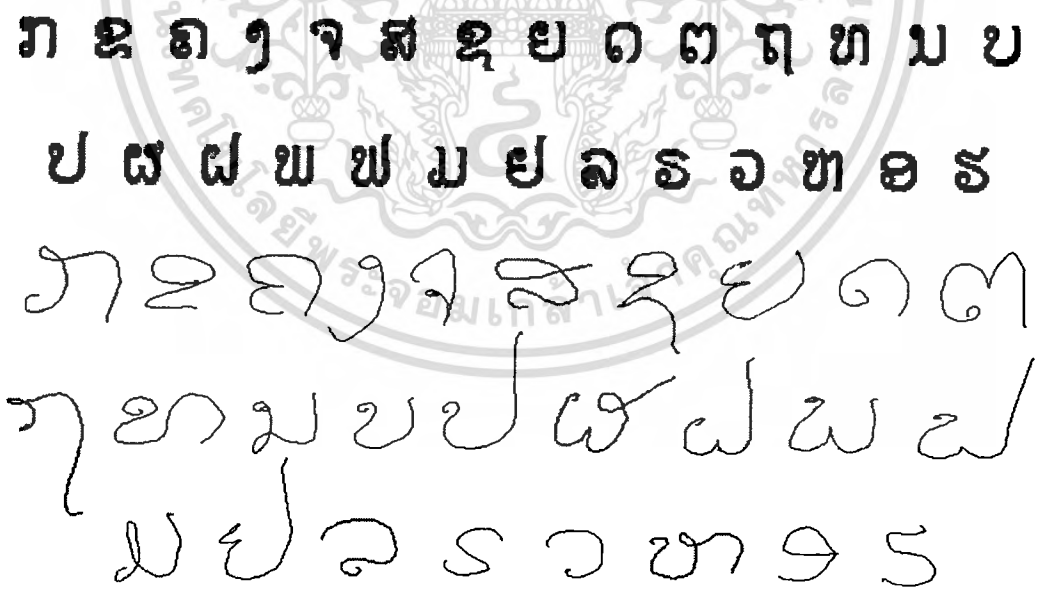 ກ ຂ ຄ ງ ຈ ສ ຊ ຍ ດ ຕ ຖ ທ ນ ບ
ປ ຜ ຝ ພ ຟ ມ ຢ ລ ຣ ວ ຫ ອ ຮ
ກ ຂ ຄ ງ ຈ ສ ຊ ຍ ດ ຕ
ຖ ທ ນ ບ ປ ຜ ຝ ພ ຟ
ມ ຢ ລ ຣ ວ ຫ ອ ຮ